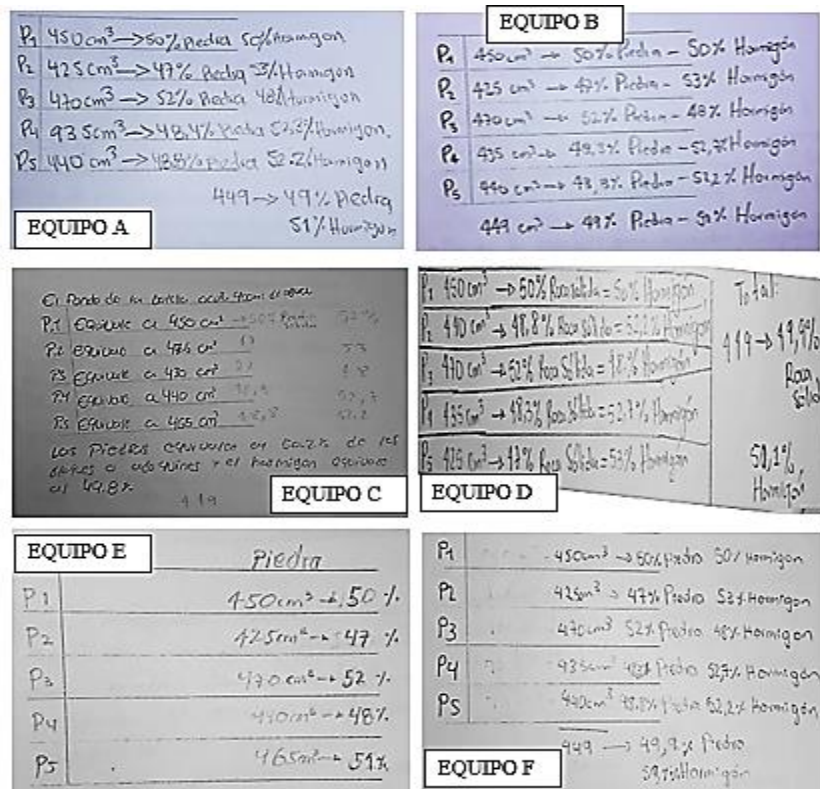 P1 450 cm³ → 50% Piedra 50% Hormigon
P2 425 cm³ → 47% Piedra 53% Hormigon
P3 470 cm³ → 52% Piedra 48% Hormigon
P4 935 cm³ → 48,4% Piedra Hormigon
P5 440 cm³ → 48.8% piedra 52.2% Hormigon
449 → 49% Piedra
51% Hormigon
EQUIPO A
EQUIPO B
P1 450 cm³ → 50% Piedra - 50% Hormigón
P2 425 cm³ → 47% Piedra - 53% Hormigón
P3 470 cm³ → 52% Piedra - 48% Hormigón
P4 435 cm³ → Piedra - 52,7% Hormigón
P5 440 cm³ → Piedra - 53,2% Hormigón
449 cm³ → 49% Piedra - Hormigón
El Fondo de la
P1 Equivale a 450 cm³ → 50%
P2 equivale a cm³ 53
P3 Equivale a 430 cm³
P4 Equivale a 440 cm³
P5 Equivale a 465 cm³
Los Piedras de los
o adoquines y el hormigon equivale
49.8%
449
EQUIPO C
P1 450 cm³ → 50% Roca solida = 50% Hormigón
P2 440 cm³ → 48,8% Roca Sólida = Hormigón
P3 470 cm³ → 52% Roca Sólida = 48% Hormigón
P4 435 cm³ → 48,3% Roca Sólida = 52,7% Hormigón
P5 425 cm³ → 47% Roca Sólida = 53% Hormigón
Total:
449 → 49,9%
Roca
Sólida
50,1%
Hormigón
EQUIPO D
EQUIPO E
Piedra
P1 450 cm³ → 50 %
P2 425 cm³ → 47 %
P3 470 cm³ → 52 %
P4 440 cm³ → 48%
P5 465 cm³ → 51%
P1 450 cm³ → 50% Piedra 50% Hormigon
P2 425 cm³ → 47% Piedra 53% Hormigon
P3 470 cm³ 52% Piedra 48% Hormigon
P4 935 cm³ Piedra 52,7% Hormigón
P5 Piedra 52,2% Hormigón
449 → 49,9% Piedra
Hormigón
EQUIPO F